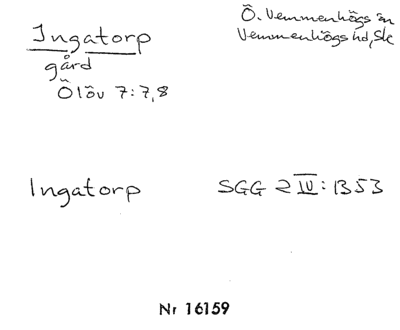 Ingatorp
gård
Ölöv 7:7,8
Ö. Vemmenhögs sn
Vemmenhögs hd, Sk
Ingatorp SGG 2 IV: 1353
Nr 16159